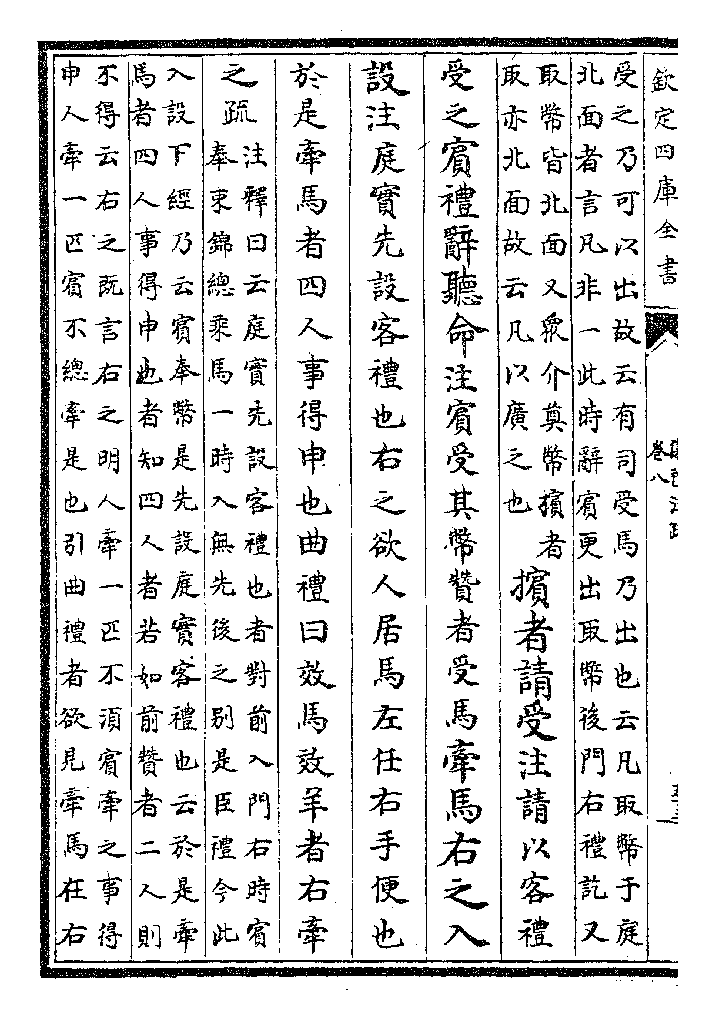 欽定四庫全書
卷八
受之乃可以出故云有司受馬乃出也云凡取幣于庭
北面者言凡非一此時辭賓更出取幣後門右禮訖又
取幣皆北面又衆介奠幣擯者
取亦北面故云凡以廣之也
擯者請受注請以客禮
受之賓禮辭聽命注賓受其幣贊者受馬牽馬右之入
設注庭實先設客禮也右之欲人居馬左任右手便也
於是牽馬者四人事得申也曲禮曰效馬效羊者右牽
之疏
注釋曰云庭實先設客禮也者對前入門右時賓
奉束錦總乘馬一時入無先後之别是臣禮今此
入設下經乃云賓奉幣是先設庭實客禮也云於是牽
馬者四人事得申也者知四人者若如前贊者二人則
不得云右之既言右之明人牽一匹不須賓牽之事得
申人牽一匹賓不總牽是也引曲禮者欲見牽馬在右